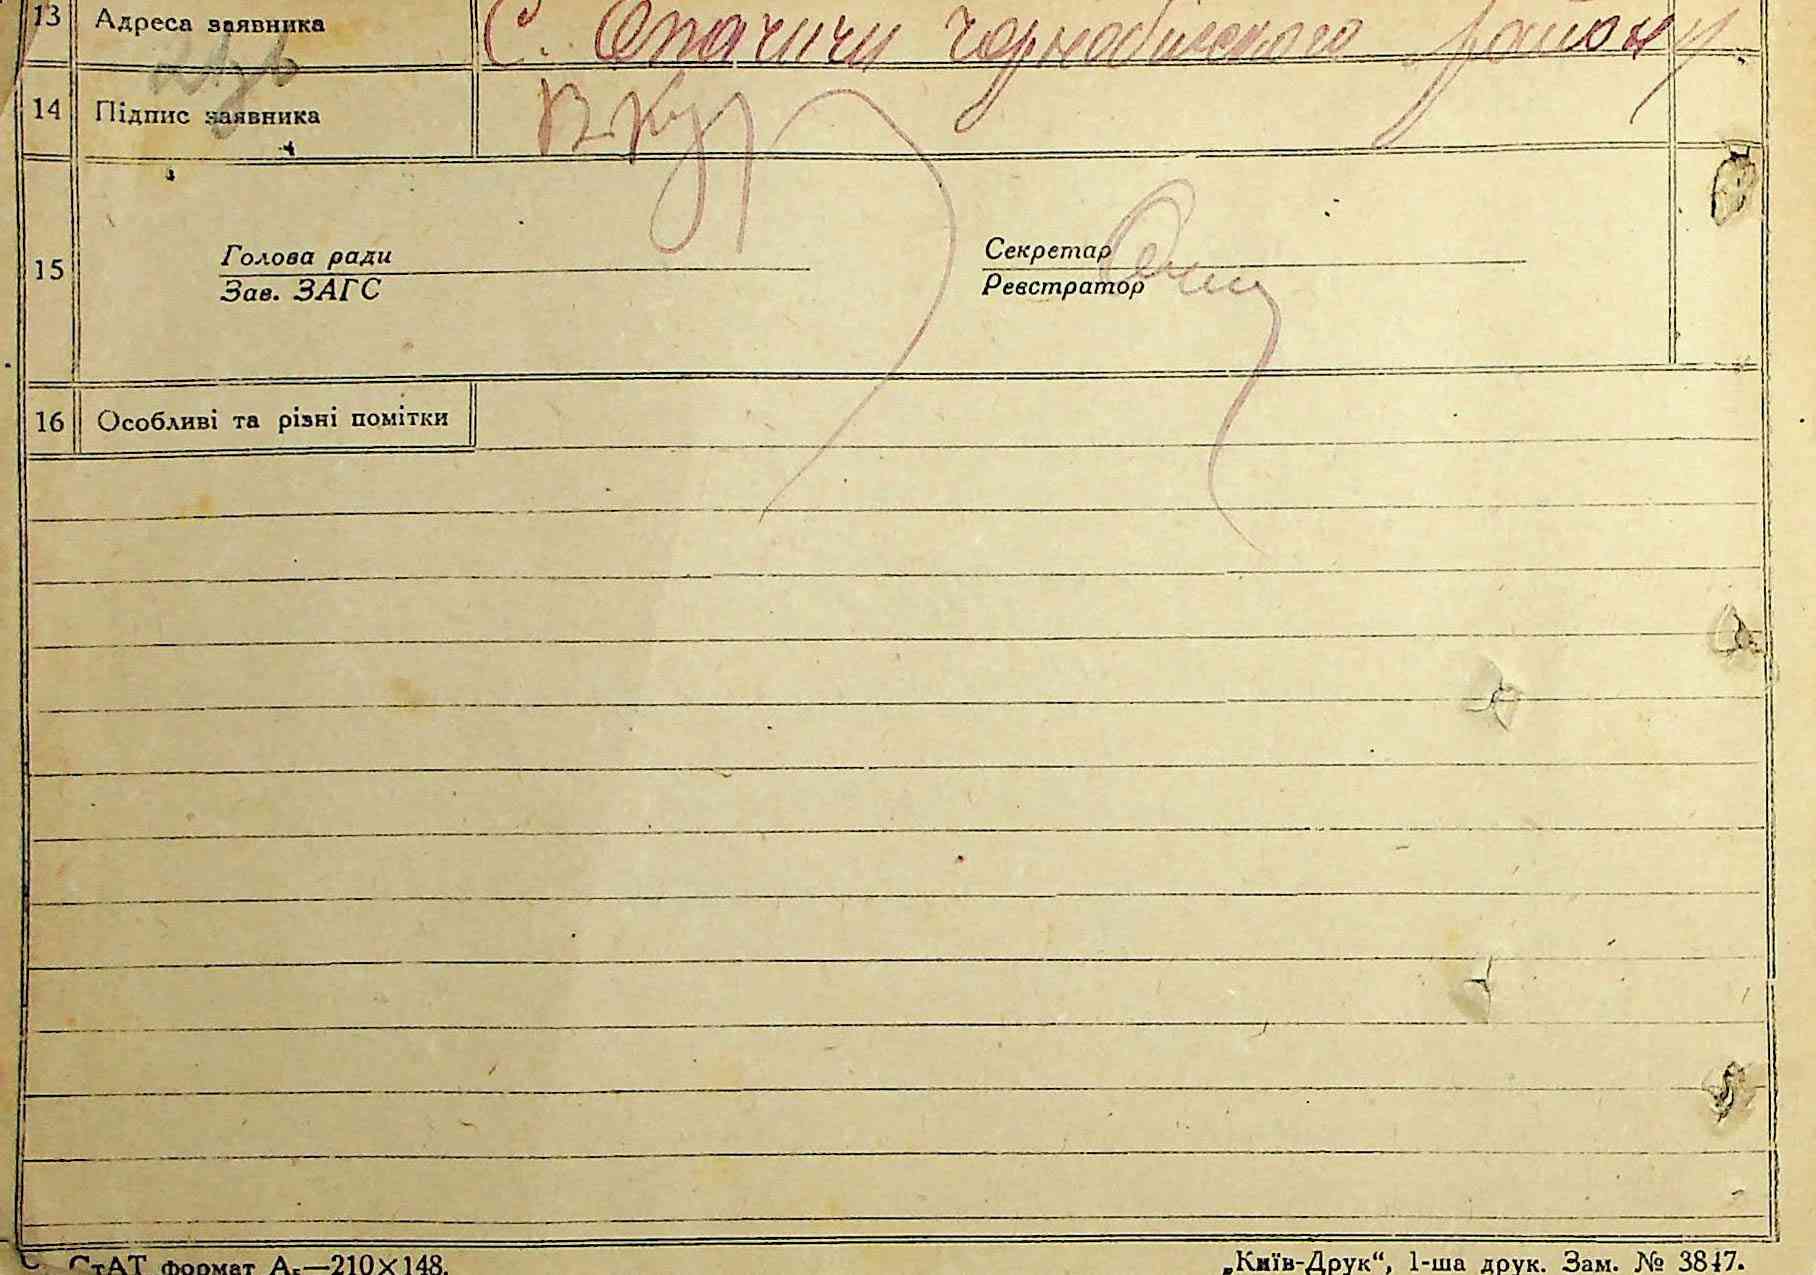 13 Адреса заявника С. Опачичи Чорнобильского району
14 Підпис заявника
15 Голова ради Секретар
Зав. ЗАГС Реєстратор
16 Особливі та різні помітки
СтАТ формат А₅—210×148. „Київ-Друк“, 1-ша друк. Зам. № 3847.